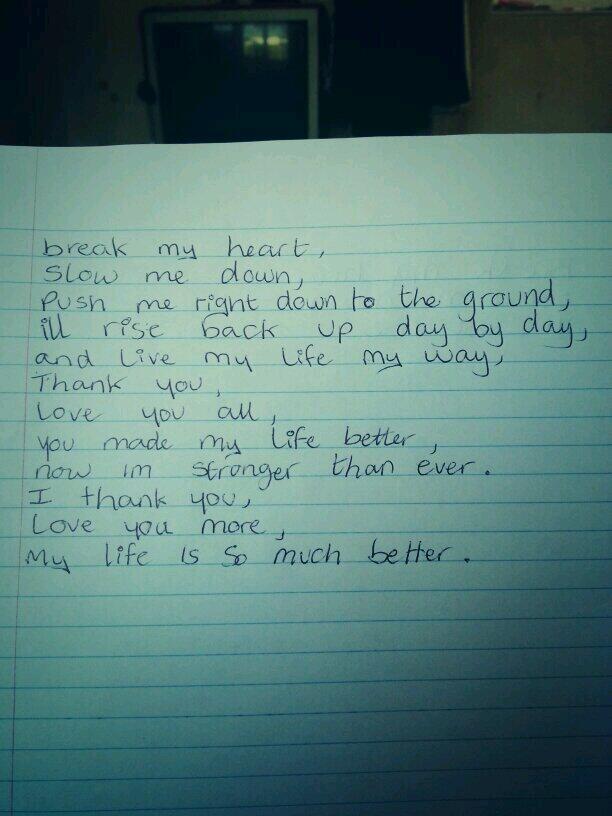 break my heart,
Slow me down,
Push me right down to the ground,
ill rise back up day by day,
and live my life my way,
Thank you,
Love you all,
you made my life better,
now im stronger than ever.
I thank you,
Love you more,
My life is so much better.